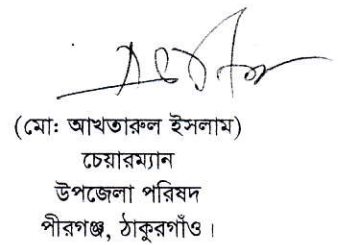 (মোঃ আখতারুল ইসলাম)
চেয়ারম্যান
উপজেলা পরিষদ
পীরগঞ্জ, ঠাকুরগাঁও।